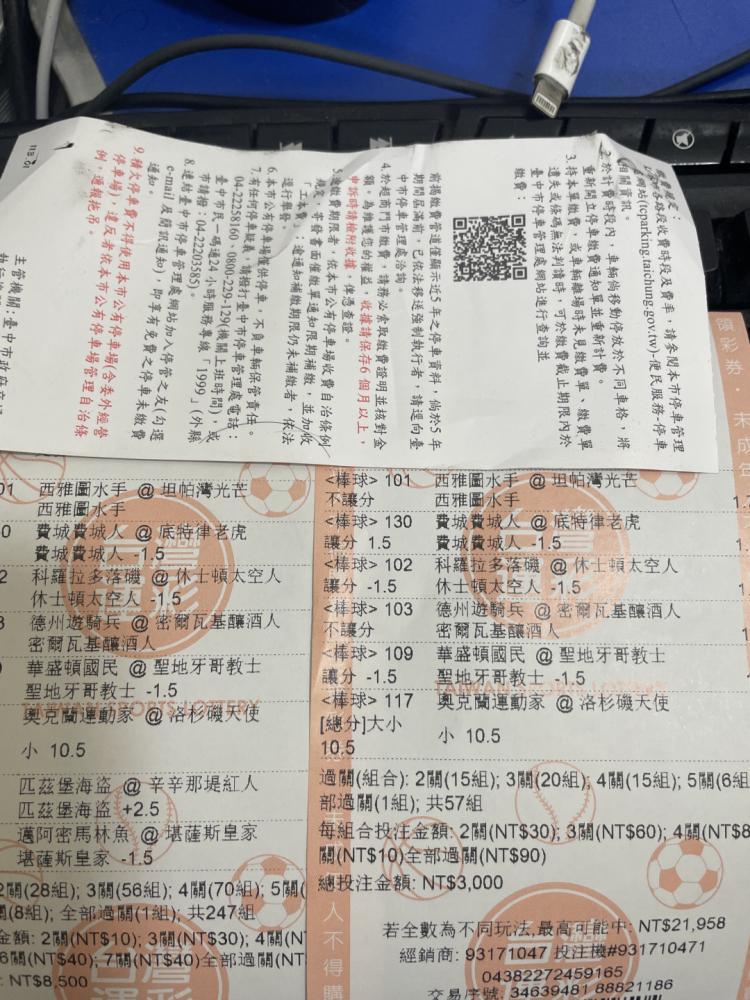 113.01
1.
相關資訊。
2.於計費時段內，車輛倘移動停放於不同車格，將
重新開立停車繳費通知單並重新計費。
3.持本單繳費，或車輛離場時未見繳費單、繳費單
遺失或條碼無法判讀時，可於繳費截止期限內於
臺中市停車管理處網站進行查詢並
繳費：
前揭繳費管道僅顯示近5年之停車資料，倘於5年
期間屆滿前，已依法移送強制執行者，請逕向臺
中市停車管理處洽詢。
4.於超商門市繳費，請務必索取繳費證明並核對金
額。為維護您的權益，收據請保存6個月以上，
申訴時請檢附收據，俾憑查證。
5.逾繳費期限者，依本市公有停車場收費自治條例
規定，寄發書面催繳單通知限期補繳，並加收
「工本費」，逾通知補繳期限仍未補繳者，依法
逕行舉發。
6.本市公有停車場僅供停車，不負車輛保管責任。
7.有任何停車疑義，請撥打臺中市停車管理處電話：
04-2258160、0800-229-129(機關上班時間)，或
臺中市民一碼通24小時服務專線「1999」(外縣
市請撥：04-22203585)。
8.連結臺中市停車管理處網站加入停管之友(勾選
e-mail及簡訊通知)，即享有免費之停車未繳費
通知。
9.積欠停車費不得使用本市公有停車場(含委外經營
停車場)，違反者依本市公有停車場管理自治條
例，逕都拖吊。
主管機關：臺中市政府
領彩券·未成
01 西雅圖水手 @ 坦帕灣光芒
西雅圖水手
0 費城費城人 @ 底特律老虎
費城費城人 -1.5
2 科羅拉多落磯 @ 休士頓太空人
休士頓太空人 -1.5
3 德州遊騎兵 @ 密爾瓦基釀酒人
密爾瓦基釀酒人
華盛頓國民 @ 聖地牙哥教士
聖地牙哥教士 -1.5
奧克蘭運動家 @ 洛杉磯天使
小 10.5
匹茲堡海盜 @ 辛辛那堤紅人
匹茲堡海盜 +2.5
邁阿密馬林魚 @ 堪薩斯皇家
堪薩斯皇家 -1.5
2關(28組); 3關(56組); 4關(70組); 5關(
(8組); 全部過關(1組); 共247組
金額: 2關(NT$10); 3關(NT$30); 4關(N
6關(NT$40); 7關(NT$40)全部過關(NT
NT$8,500
<棒球> 101 西雅圖水手 @ 坦帕灣光芒
不讓分 西雅圖水手
<棒球> 130 費城費城人 @ 底特律老虎
讓分 1.5 費城費城人 -1.5
<棒球> 102 科羅拉多落磯 @ 休士頓太空人
讓分 -1.5 休士頓太空人 -1.5
<棒球> 103 德州遊騎兵 @ 密爾瓦基釀酒人
不讓分 密爾瓦基釀酒人
<棒球> 109 華盛頓國民 @ 聖地牙哥教士
讓分 -1.5 聖地牙哥教士 -1.5
<棒球> 117 奧克蘭運動家 @ 洛杉磯天使
[總分]大小 小 10.5
10.5
過關(組合): 2關(15組); 3關(20組); 4關(15組); 5關(6組
部過關(1組); 共57組
每組合投注金額: 2關(NT$30); 3關(NT$60); 4關(NT$8
關(NT$10)全部過關(NT$90)
總投注金額: NT$3,000
若全數為不同玩法,最高可能中: NT$21,958
經銷商: 93171047 投注機#931710471
04382272459165
交易序號: 34639481 88821186
TAIWAN SPORTS LOTTERY
人不得購